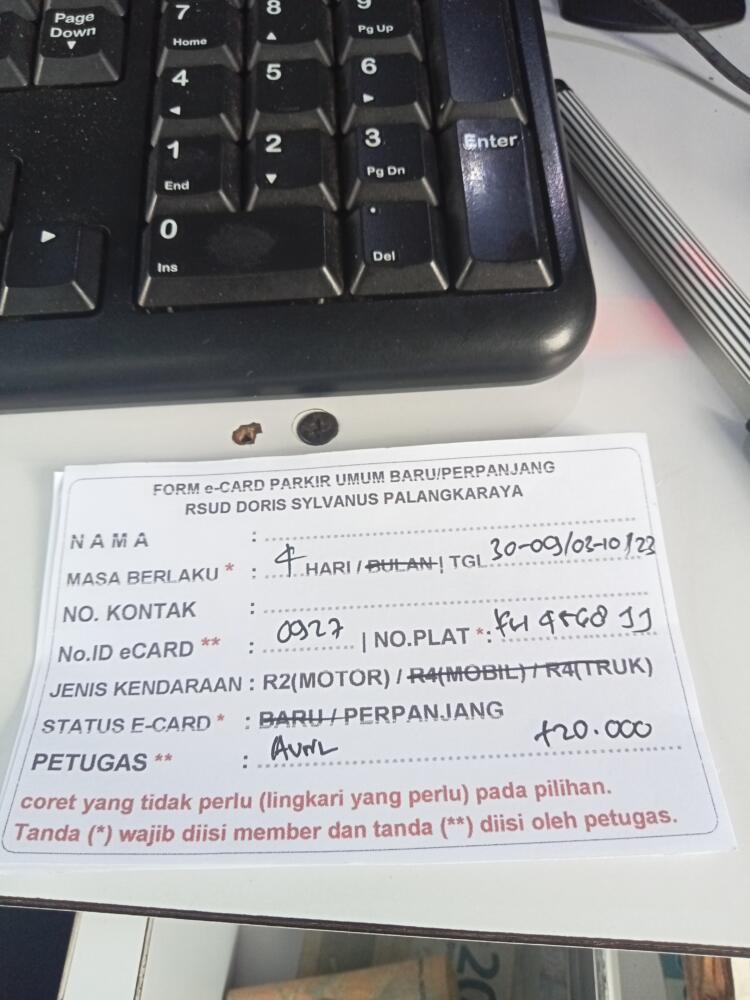 Page Down
7 Home
8
9 Pg Up
4
5
6
1 End
2
3 Pg Dn
Enter
0 Ins
. Del
FORM e-CARD PARKIR UMUM BARU/PERPANJANG
RSUD DORIS SYLVANUS PALANGKARAYA
NAMA :
MASA BERLAKU * : 4 HARI / BULAN | TGL 30-09/03-10/23
NO. KONTAK :
No.ID eCARD ** : 0927 | NO.PLAT *: KH 4568 JJ
JENIS KENDARAAN : R2(MOTOR) / R4(MOBIL) / R4(TRUK)
STATUS E-CARD * : BARU / PERPANJANG
PETUGAS ** : Avril +20.000
coret yang tidak perlu (lingkari yang perlu) pada pilihan.
Tanda (*) wajib diisi member dan tanda (**) diisi oleh petugas.
20